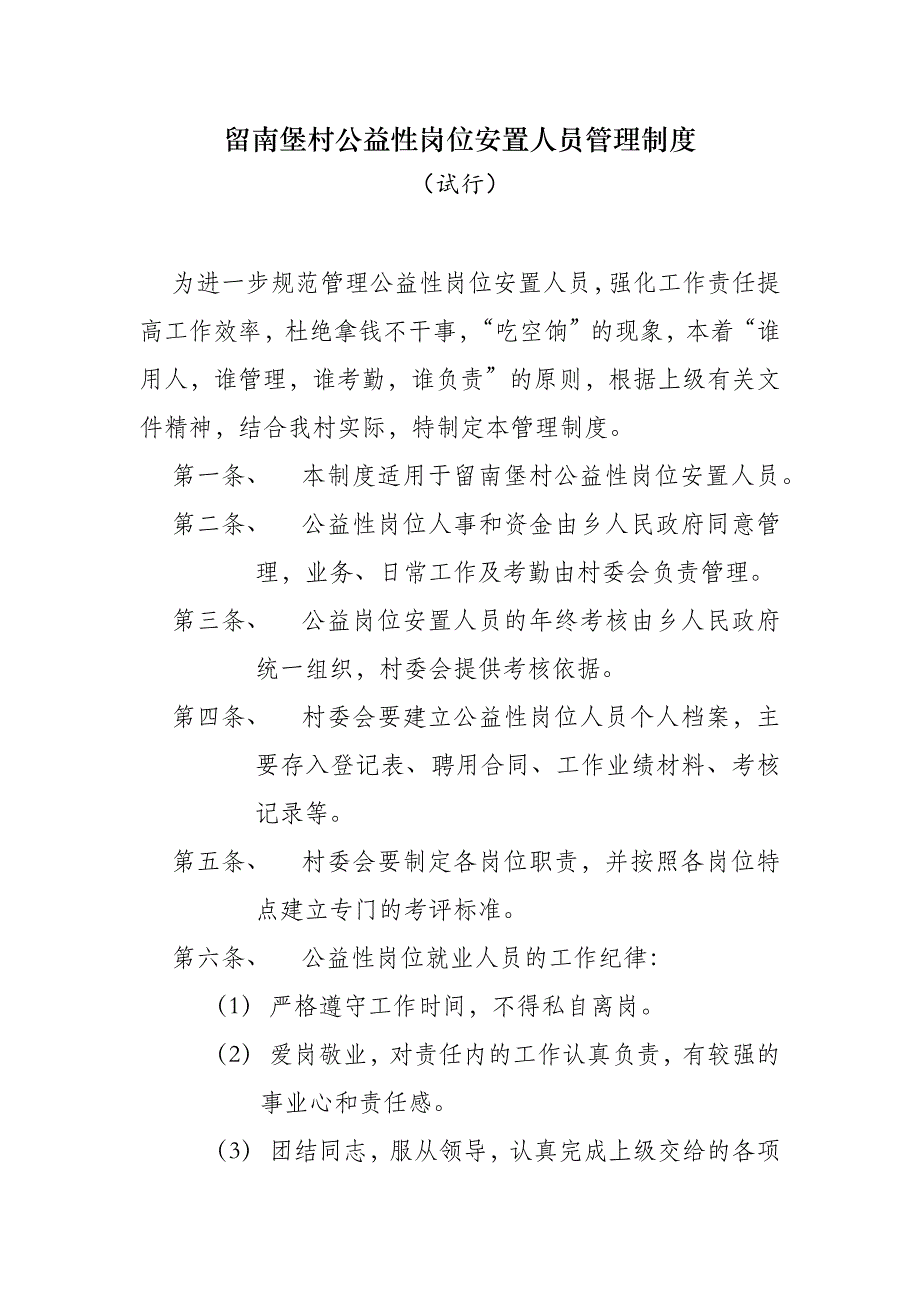 留南堡村公益性岗位安置人员管理制度
（试行）
为进一步规范管理公益性岗位安置人员，强化工作责任提
高工作效率，杜绝拿钱不干事，“吃空饷”的现象，本着“谁
用人，谁管理，谁考勤，谁负责”的原则，根据上级有关文
件精神，结合我村实际，特制定本管理制度。
第一条、 本制度适用于留南堡村公益性岗位安置人员。
第二条、 公益性岗位人事和资金由乡人民政府同意管
理，业务、日常工作及考勤由村委会负责管理。
第三条、 公益岗位安置人员的年终考核由乡人民政府
统一组织，村委会提供考核依据。
第四条、 村委会要建立公益性岗位人员个人档案，主
要存入登记表、聘用合同、工作业绩材料、考核
记录等。
第五条、 村委会要制定各岗位职责，并按照各岗位特
点建立专门的考评标准。
第六条、 公益性岗位就业人员的工作纪律：
（1） 严格遵守工作时间，不得私自离岗。
（2） 爱岗敬业，对责任内的工作认真负责，有较强的
事业心和责任感。
（3） 团结同志，服从领导，认真完成上级交给的各项